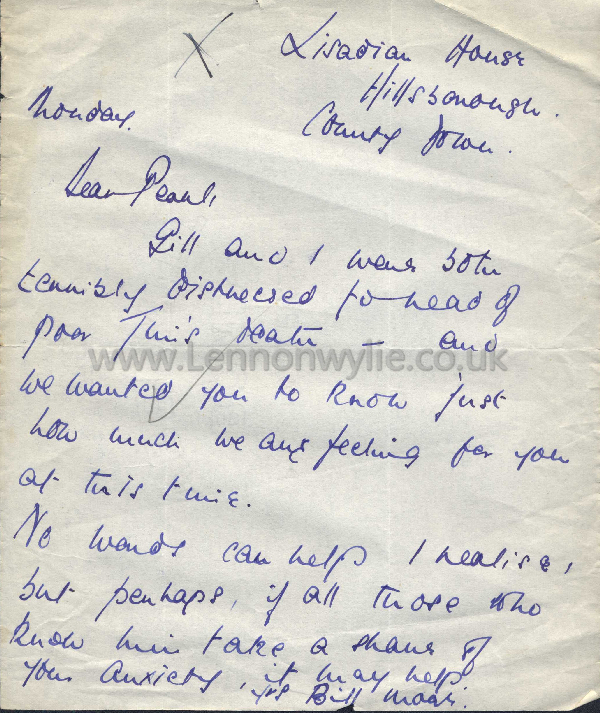 Lisadian House
Hillsborough.
County Down.
Monday.
Dear Pearl,
Bill and I were both
terribly distressed to read of
poor Jim's death – and
www.Lennonwylie.co.uk
we wanted you to know just
how much we are feeling for you
at this time.
No words can help I realise,
but perhaps, if all those who
know him take a share of
your anxiety, it may help
Bill